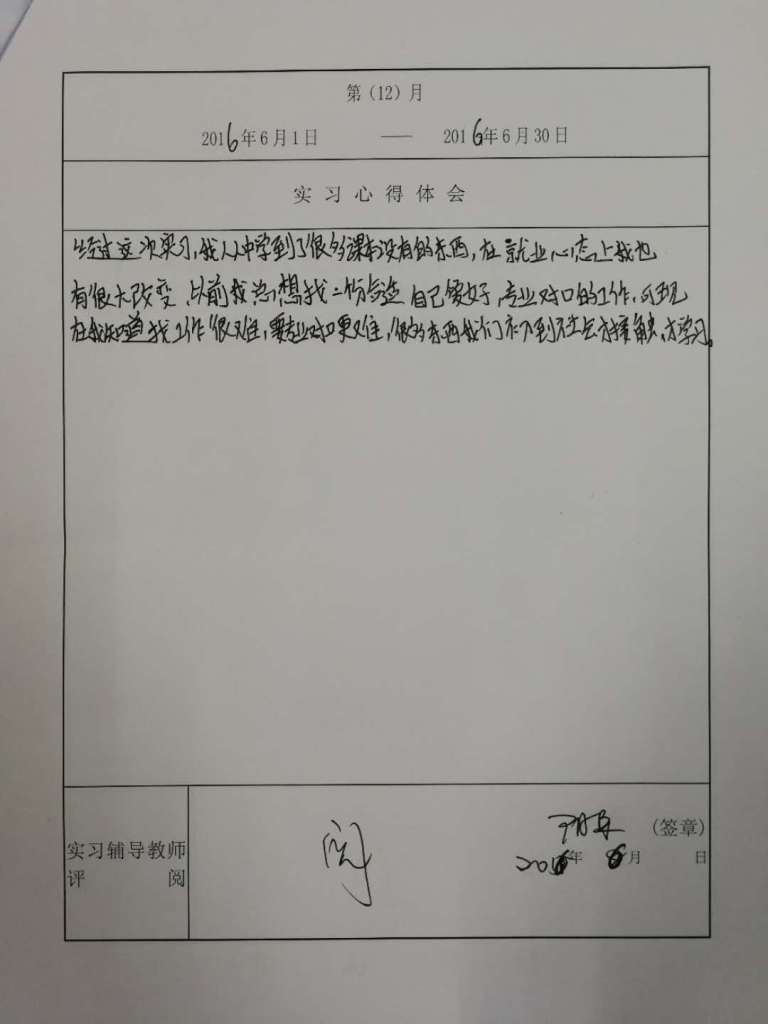 第（12）月
2016年6月1日 —— 2016年6月30日
实习心得体会
经过这次实习，我从中学到了很多课本没有的东西，在就业心态上我也
有很大改变，以前我总想找一份适 自己爱好，专业对口的工作，可现
在我知道找工作很难，要专业对口更难，很多东西我们 到社会才接触、才学习。
实习辅导教师
评 阅
阅
（签章）
2016年 6月 日